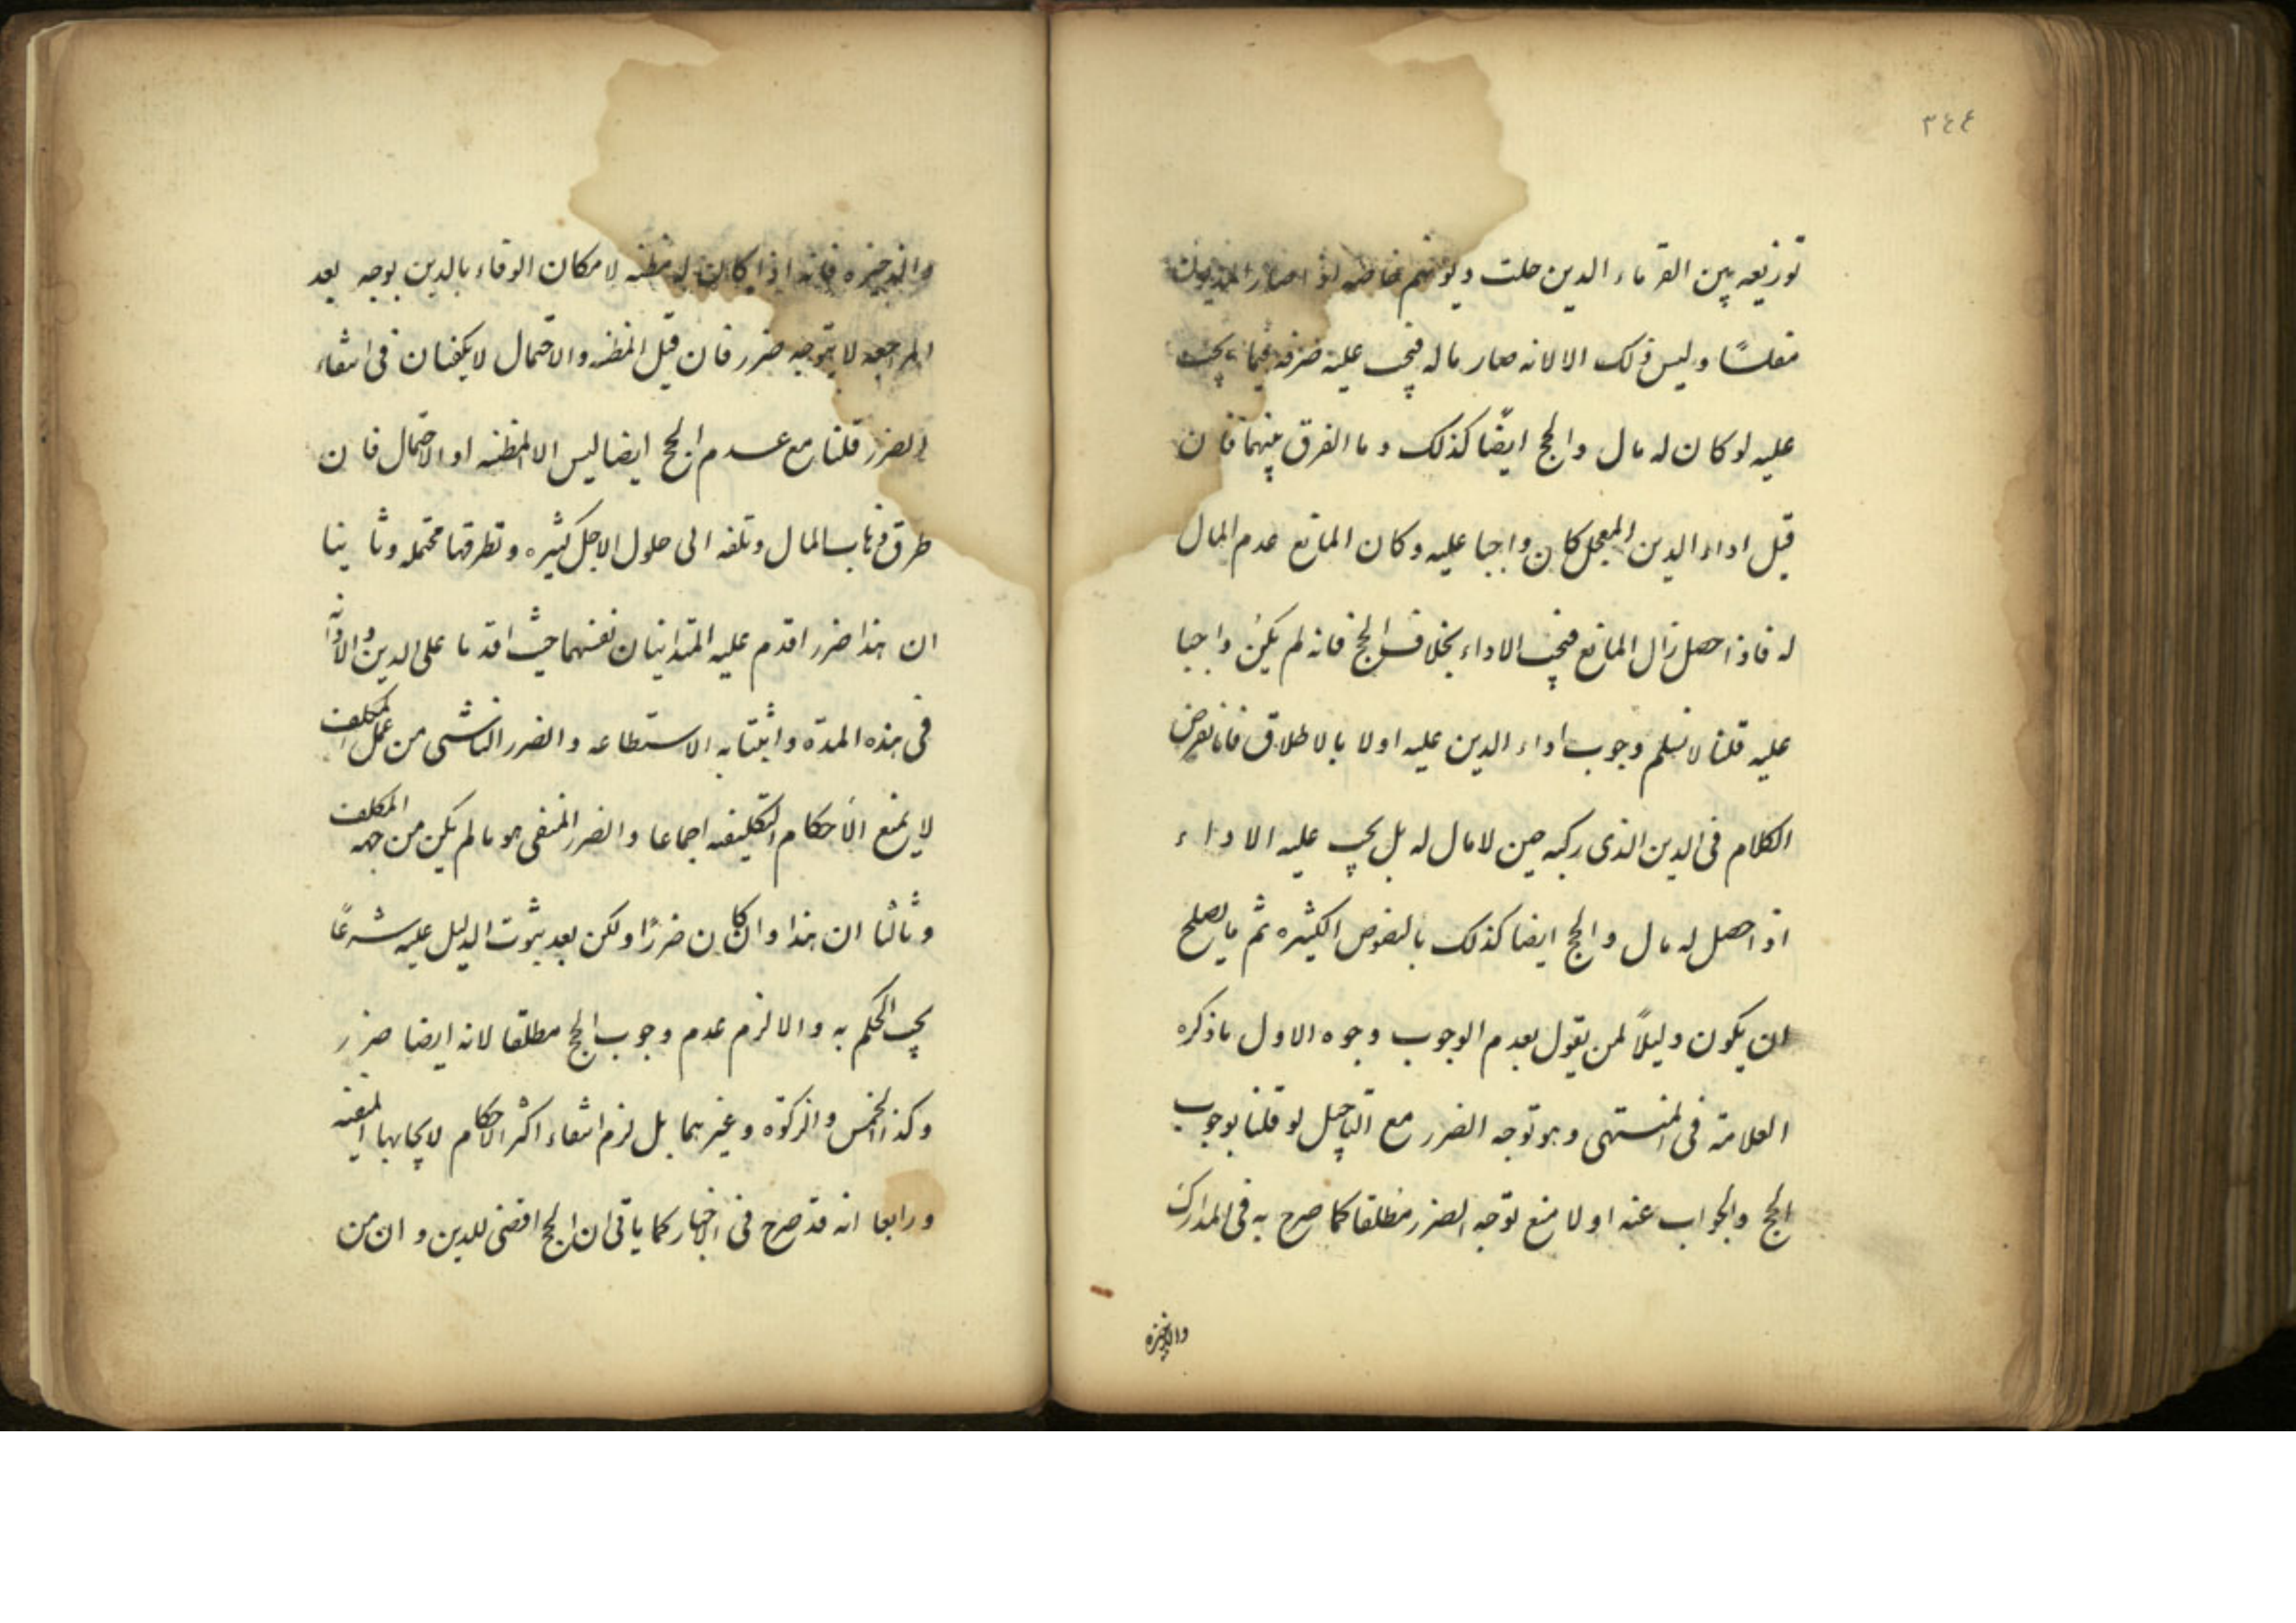 ٣٤٤
توزيعه بين الغرماء الدين حلت ديونهم خاصه اذا صار المديون
مفلسًا وليس ذلك الا لانه صار ماله فيجب عليه صرفه فيما يجب
عليه لو كان له مال والحج ايضًا كذلك وما الفرق بينهما فان
قيل اداء الدين المعجل كان واجبا عليه وكان المانع عدم المال
له فاذا حصل زال المانع فيجب الاداء بخلاف الحج فانه لم يكن واجبا
عليه قلنا لا نسلم وجوب اداء الدين عليه اولا بالاطلاق فانا نعرض
الكلام فى الدين الذى ركبه حين لا مال له بل يجب عليه الاداء
اذا حصل له مال والحج ايضا كذلك بالنصوص الكثيره ثم ما يصلح
ان يكون دليلاً لمن يقول بعدم الوجوب وجوه الاول ما ذكره
العلامة فى المنتهى وهو توجه الضرر مع التاجيل لو قلنا بوجوب
الحج والجواب عنه اولا منع توجه الضرر مطلقا كما صرح به فى المدارك
والذخيره
والذخيره فانه اذا كان له مظنه لامكان الوفاء بالدين بوجه بعد
المراجعه لا يتوجه ضرر فان قيل المظنه والاحتمال لا يكفيان فى انتفاء
الضرر قلنا مع عدم الحج ايضا ليس الا المظنه او الاحتمال فان
طرق ذهاب المال وتلفه الى حلول الاجل كثيره وتطرقها محتمله وثانيا
ان هذا ضرر اقدم عليه المتداينان نفسهما حيث اقدما على الدين والادانه
فى هذه المدة واثبتا به الاستطاعه والضرر الناشى من عمل المكلف
لا يمنع الاحكام التكليفيه اجماعا والضرر المنفى هو ما لم يكن من جهه المكلف
وثالثا ان هذا وان كان ضررًا ولكن بعد ثبوت الدليل عليه شرعًا
يجب الحكم به والا لزم عدم وجوب الحج مطلقا لانه ايضا ضرر
وكذا الخمس والزكوة وغيرهما بل لزم انتفاء اكثر الاحكام لايجابها
ورابعا انه قد صرح فى الاخبار كما ياتى ان الحج اقضى للدين و ان من